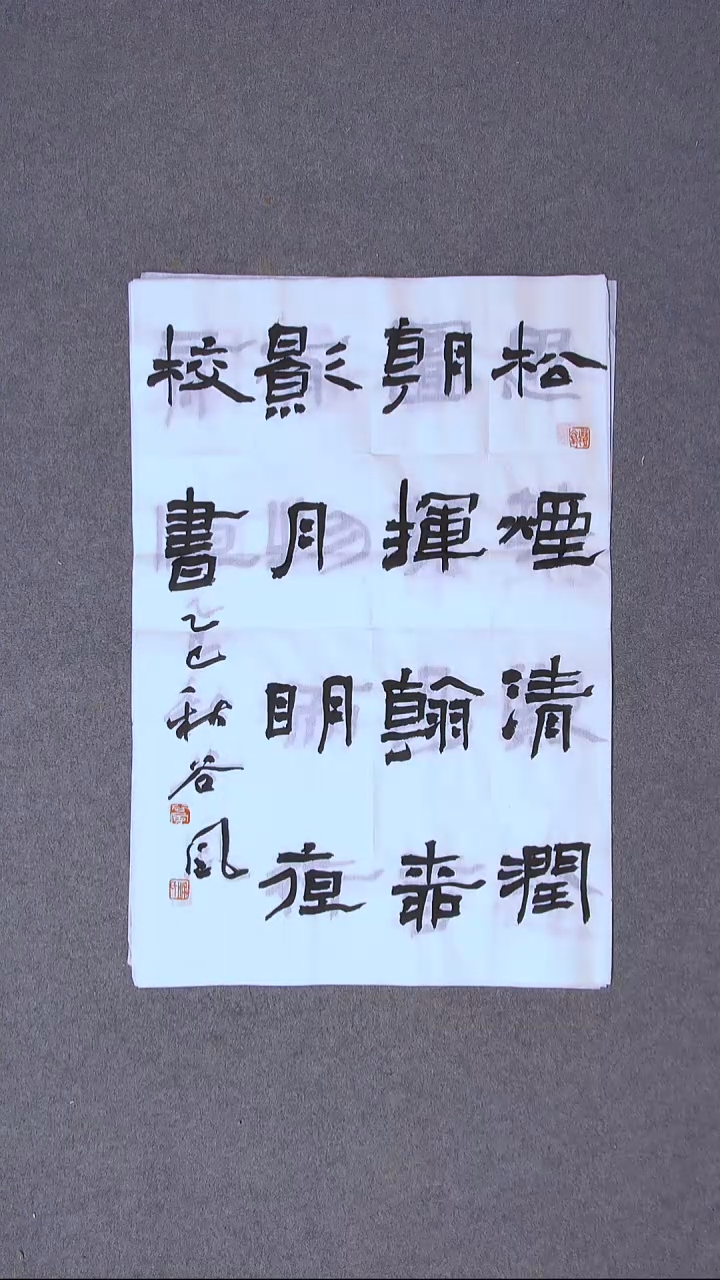 松煙清潤
朝揮翰
影月明亱
校書
乙巳秋谷風